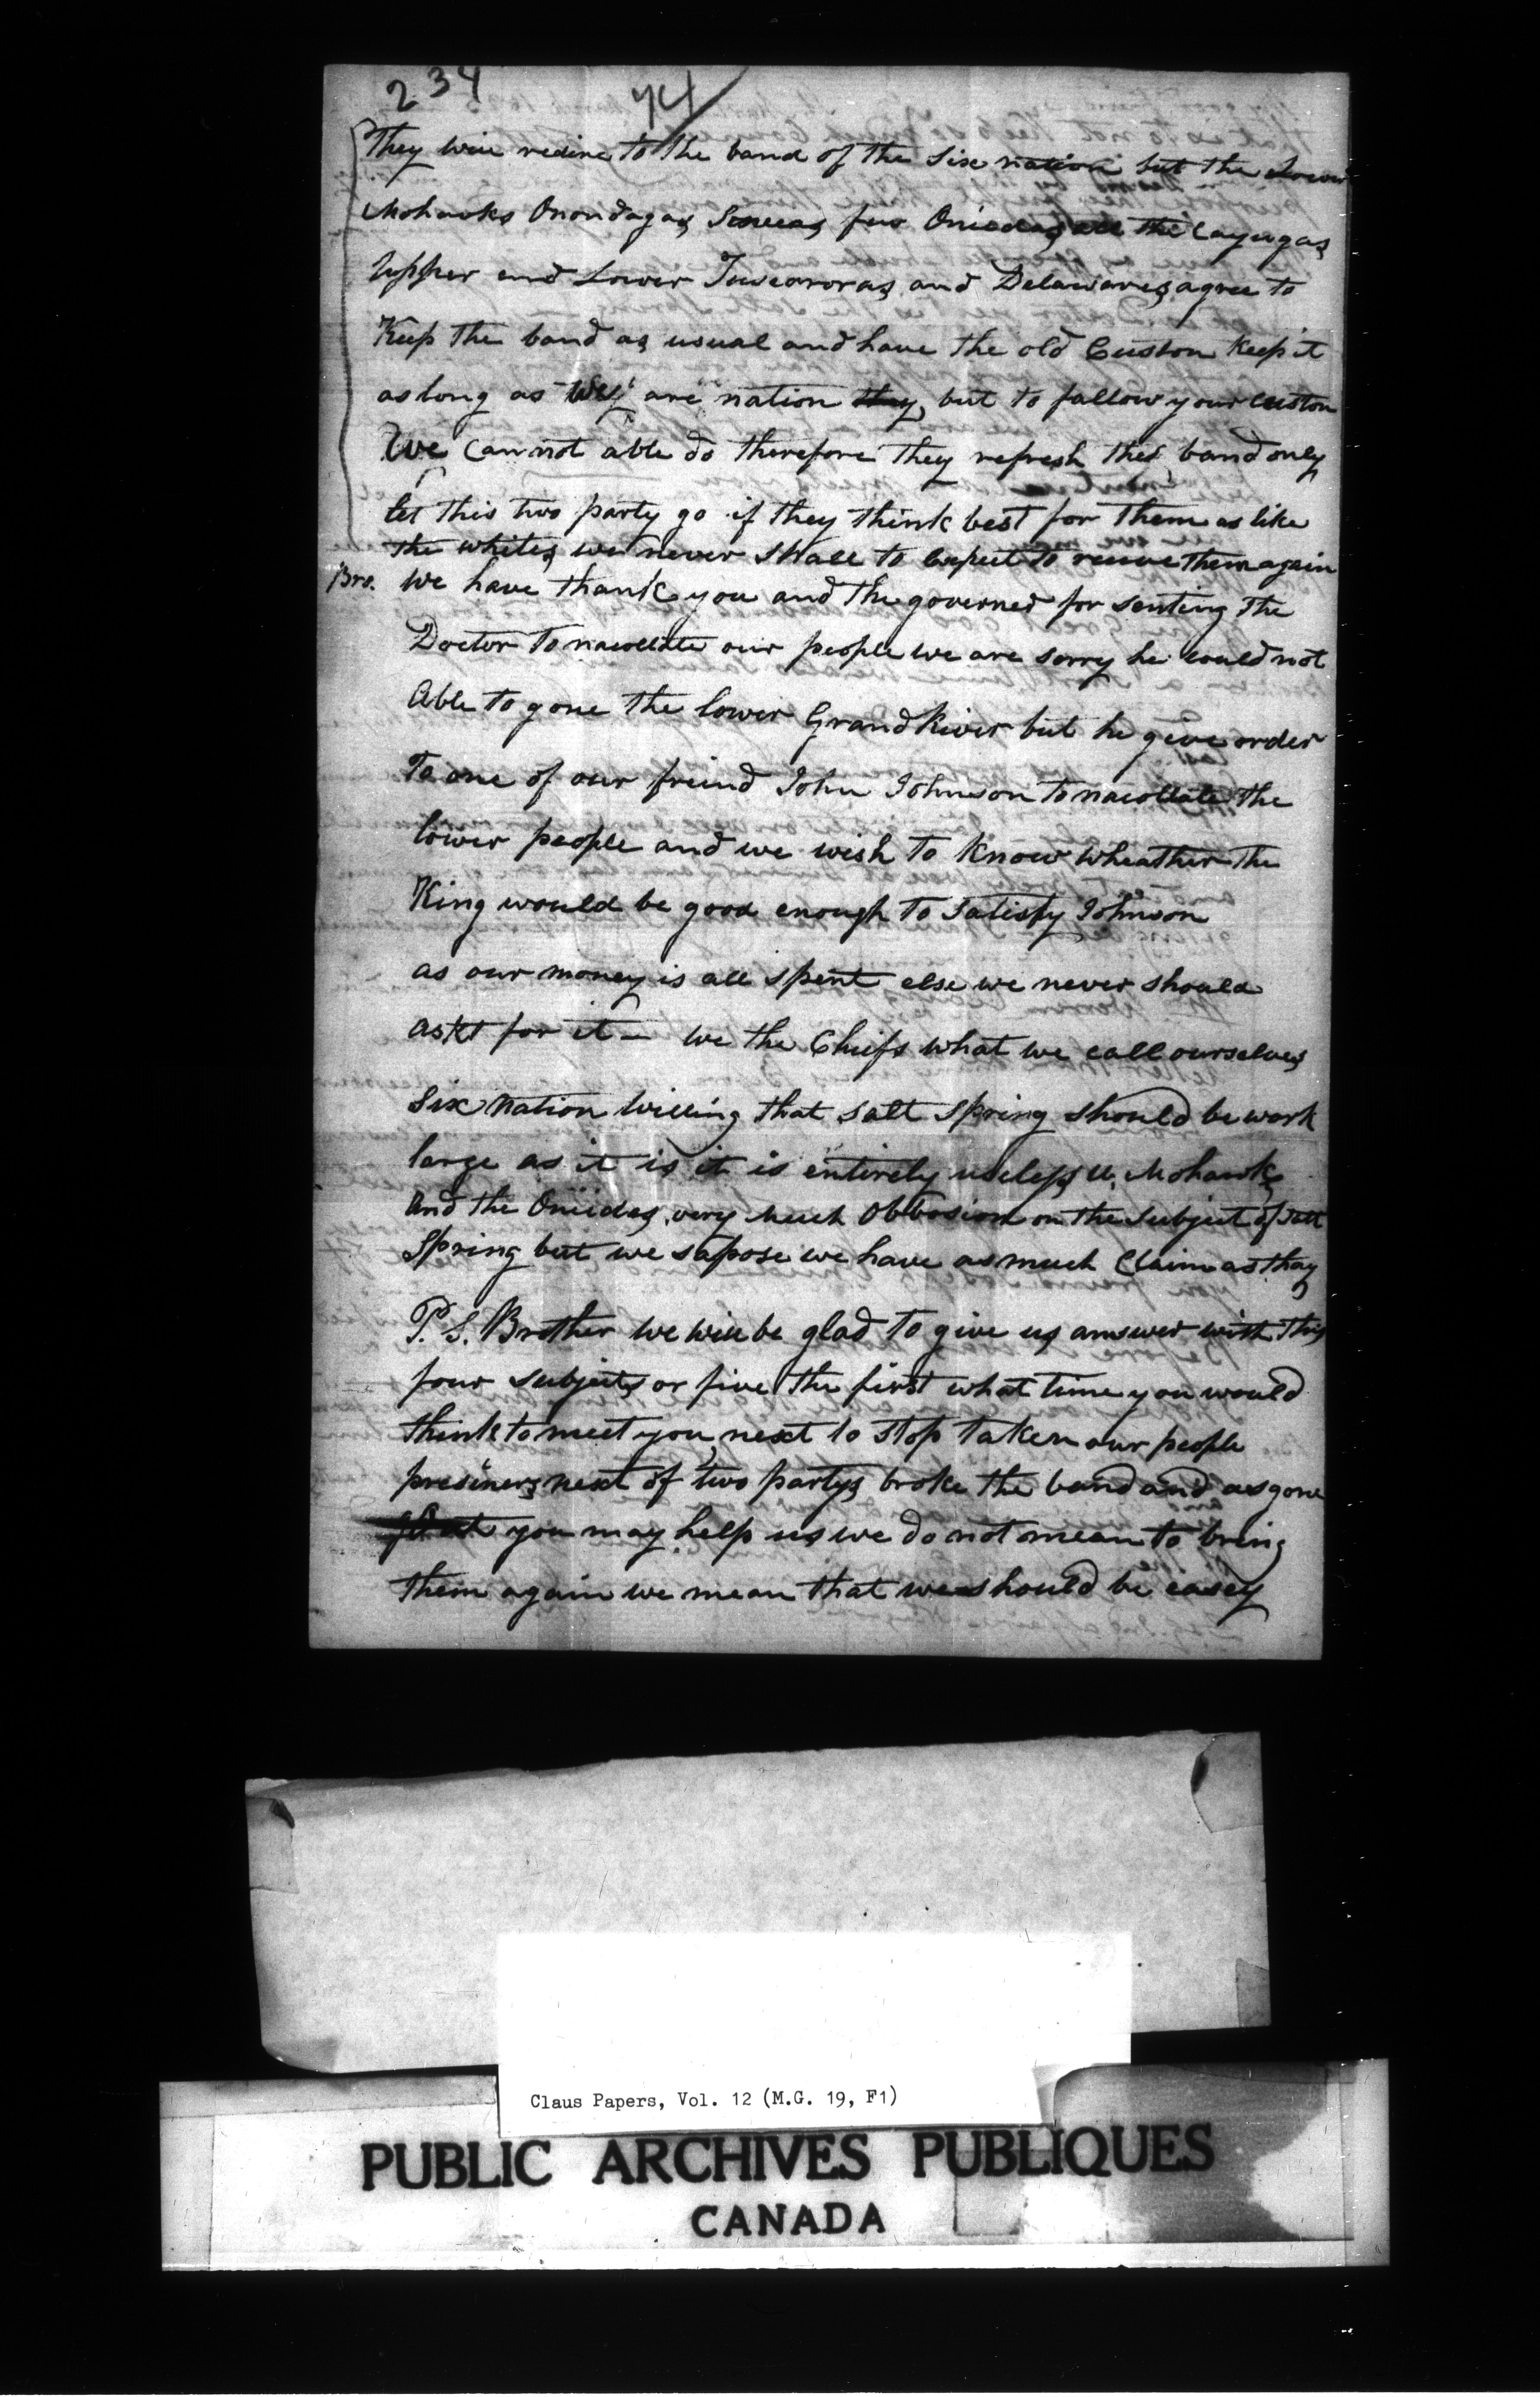 234
They will redire to the band of the Six nation but the Lower
Mohawks Onondagas Senecas few Oniedas all the Cayugas
Upper and Lower Tuscaroras and Delawares agree to
Keep the band as usual and have the old Custom Keep it
as long as We are nation they, but to fallow your custon
We Cannot able do therefore they refresh this band only
let this two party go if they think best for them as like
the whites we never Shall to Expect to receive them again
Bro. We have thank you and the governer for senting the
Doctor to nacollate our people we are sorry he could not
Able to gone the lower Grand River but he give order
To one of our freind John Johnson to nacollate the
lower people and we wish to Know wheather the
King would be good enough to Satisfy Johnson
as our money is all spent else we never should
askt for it — we the Chiefs what we call ourselves
Six Nation willing that salt spring should be work
large as it is it is entirely useless U. Mohawks
And the Oniedas very much Obbosion on the Subject of Salt
Spring but we sapose we have as much Claim as thay
P. S. Brother we will be glad to give us answer with this
four subjects or five the first what time you would
think to meet you, next to stop taken our people
presiners next of two partys broke the band and as gone
you may help us we do not mean to bring
them again we mean that we should be easey
Claus Papers, Vol. 12 (M.G. 19, F1)
PUBLIC ARCHIVES PUBLIQUES
CANADA